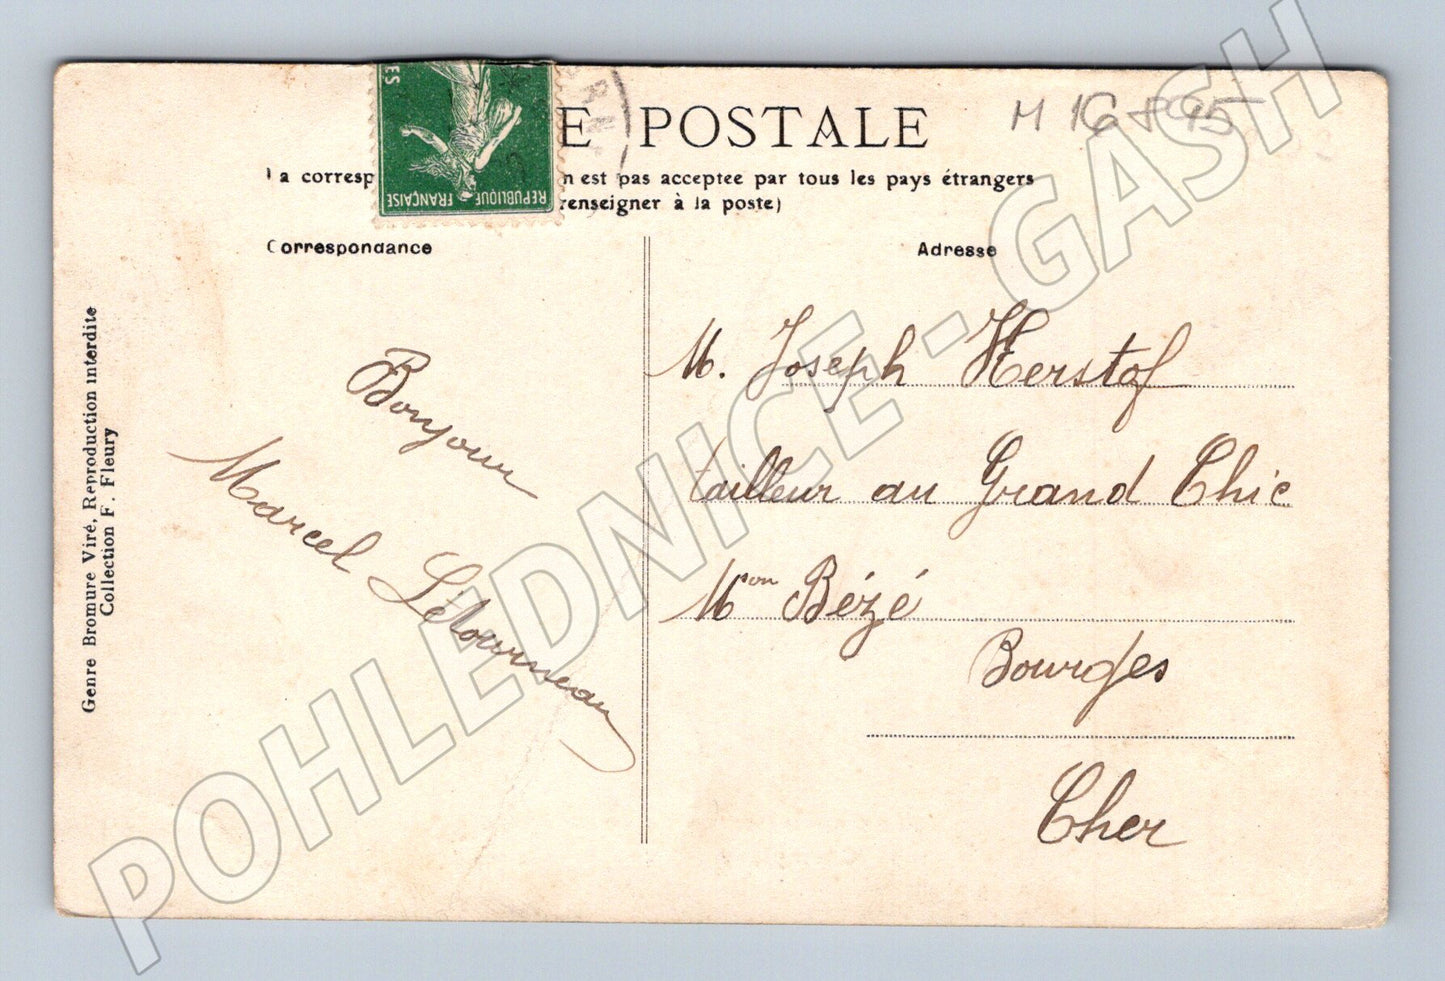 E POSTALE
M 16
a corresp n est pas acceptee par tous les pays étrangers
renseigner à la poste)
REPUBLIQUE FRANÇAISE
ES
Correspondance
Adresse
Bonjour
Marcel Létourneau
M. Joseph Herstof
tailleur au Grand Chic
Mson Bézé
Bourges
Cher
Genre Bromure Viré, Reproduction interdite
Collection F. Fleury
POHLEDNICE - GASH